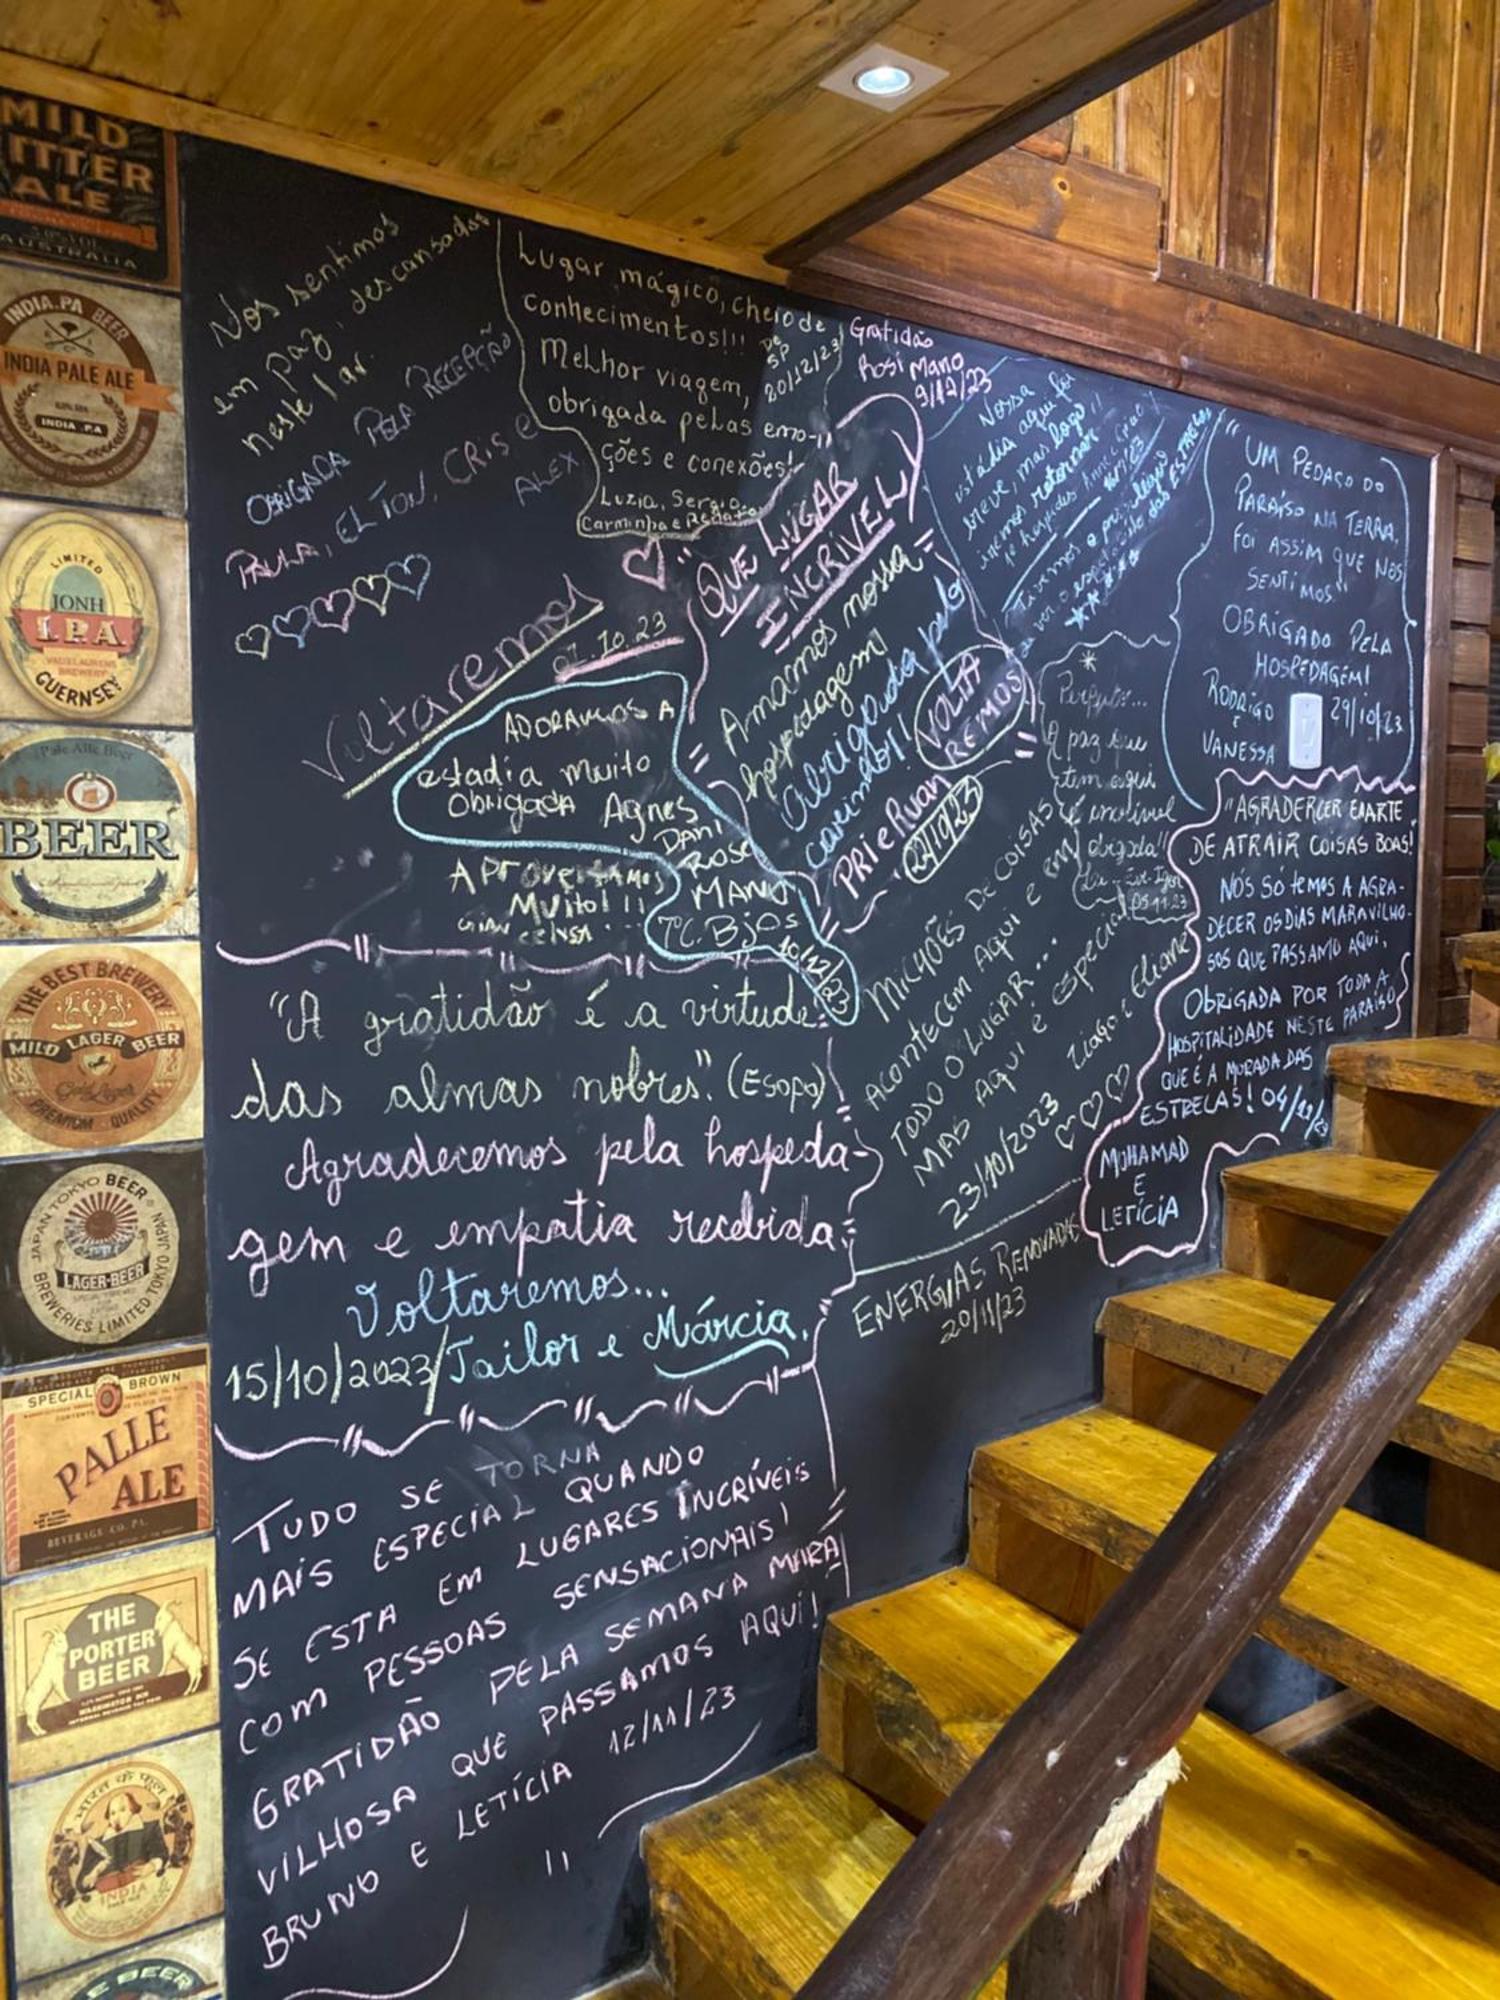 MILD
ITTER
ALE
AUSTRALIA
INDIA.PA BEER
INDIA PALE ALE
INDIA P.A
LIMITED
JONH
I.P.A.
GUERNSEY
Pale Alle Beer
BEER
THE BEST BREWERY
MILD LAGER BEER
PREMIUM QUALITY
JAPAN TOKYO BEER
LAGER-BEER
BREWERIES LIMITED TOKYO JAPAN
SPECIAL BROWN
PALLE
ALE
BEVERAGE CO. PA.
THE
PORTER
BEER
भारत के फूल
INDIA
E BEER
Nos sentimos
em paz, descansados
neste lar.
OBRIGADA PELA RECEPÇÃO
PAULA, ELTON, CRIS e
ALEX
Lugar mágico, cheio de
conhecimentos!!!
Melhor viagem,
obrigada pelas emo-
ções e conexões!
Luzia, Sergio,
Carminha e Renato
DE
SP
20/12/23
Gratidão
Rosi Mano
9/12/23
Nossa
estádia aqui foi
breve, mas logo
iremos retornar
Tivemos o privilégio
de ver o espetáculo das ESTRELAS
"UM PEDAÇO DO
PARAÍSO NA TERRA,
FOI ASSIM QUE NOS
SENTIMOS"
OBRIGADO PELA
HOSPEDAGEM!
RODRIGO
E
VANESSA
29/10/23
Voltaremos
07.10.23
"QUE LUGAR
INCRÍVEL"
Amamos nossa
hospedagem!
Obrigada pelo
carinho!!
VOLTA
REMOS
PRI e Ruan
22/10/23
ADORAMOS A
estadia muito
Obrigada Agnes
DANI
ROSE
MANO
TC. Bjos
10/12/23
APROVEITAMOS
MUITO!!!
Perfeito...
A paz que
tem aqui
é incrível
obrigada!!
05.11.23
"AGRADERCER E A ARTE
DE ATRAIR COISAS BOAS!
NÓS SÓ TEMOS A AGRA-
DECER OS DIAS MARAVILHO-
SOS QUE PASSAMO AQUI,
OBRIGADA POR TODA A
HOSPITALIDADE NESTE PARAÍSO
QUE É A MORADA DAS
ESTRELAS! 04/11/23
MOHAMAD
E
LETÍCIA
MILHÕES DE COISAS
ACONTECEM AQUI E EM
TODO O LUGAR...
MAS AQUI É ESPECIAL
23/10/2023 Tiago e Eliane
ENERGIAS RENOVADAS
20/11/23
"A gratidão é a virtude
das almas nobres." (Esopo)
Agradecemos pela hospeda-
gem e empatia recebida.
Voltaremos...
15/10/2023/Jailor e Márcia.
TUDO SE TORNA
MAIS ESPECIAL QUANDO
SE ESTA EM LUGARES INCRÍVEIS
COM PESSOAS SENSACIONAIS!
GRATIDÃO PELA SEMANA MARA
VILHOSA QUE PASSAMOS AQUI!
BRUNO E LETÍCIA 12/11/23